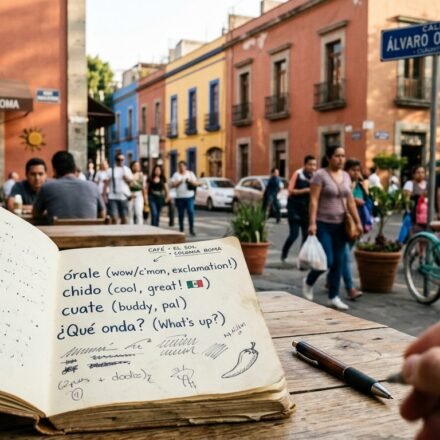 CALLE
ÁLVARO O
ROMA
CAFÉ • EL SOL
COLONIA ROMA
órale (wow/c'mon, exclamation!)
chido (cool, great! 🇲🇽)
cuate (buddy, pal)
¿Qué onda? (What's up?)